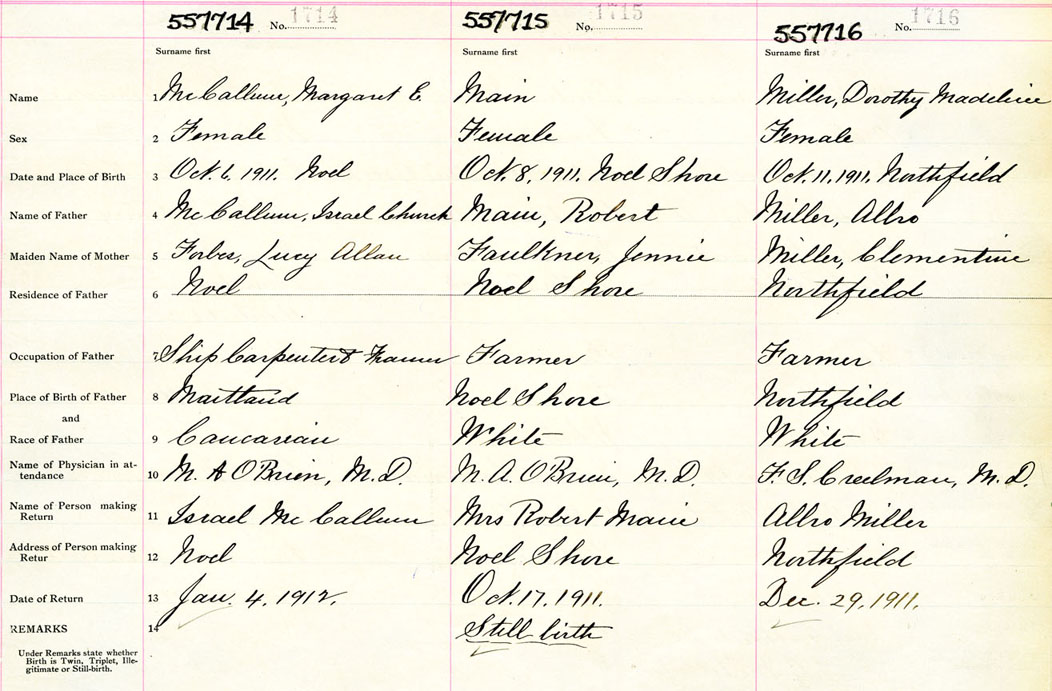 557714 No. 1714 557715 No. 1715 557716 No. 1716
Surname first Surname first Surname first
Name 1 McCallum, Margaret E. Main Miller, Dorothy Madeline
Sex 2 Female Female Female
Date and Place of Birth 3 Oct. 6, 1911. Noel Oct. 8, 1911. Noel Shore Oct. 11, 1911, Northfield
Name of Father 4 McCallum, Israel Church Main, Robert Miller, Allro
Maiden Name of Mother 5 Forbes, Lucy Allan Faulkner, Jennie Miller, Clementine
Residence of Father 6 Noel Noel Shore Northfield
Occupation of Father 7 Ship Carpenter & Farmer Farmer
Place of Birth of Father 8 Maitland Noel Shore Northfield
and
Race of Father 9 Caucasian White White
Name of Physician in at-
tendance 10 M. A O'Brien, M.D. M. A. O'Brien, M.D. F. S. Creelman, M.D.
Name of Person making
Return 11 Israel McCallum Mrs Robert Main Allro Miller
Address of Person making
Retur 12 Noel Noel Shore Northfield
Date of Return 13 Jan. 4, 1912. Oct. 17, 1911. Dec. 29, 1911.
REMARKS 14 Still birth
Under Remarks state whether
Birth is Twin, Triplet, Ille-
gitimate or Still-birth.